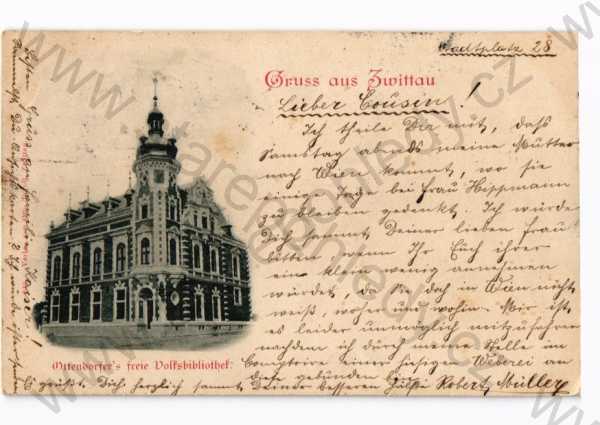 Stadtplatz 28
Gruss aus Zwittau
Lieber Cousin!
Ich theile Dir mit, dass
Samstag abends meine Mutter
nach Wien kommt, wo sie
einige Tage bei Frau Hoppmann
zu bleiben gedenkt. Ich würde
Dich sammt Deiner lieben Frau
bitten wenn Ihr Euch ihrer
ein klein wenig annehmen
würdet, da sie doch in Wien nicht
weiß, woher und wohin. Mir ist
es leider unmöglich mitzufahren
nachdem ich durch meine Stelle an
Comptoire einer hiesigen Weberei an
diese gebunden bin.
Es grüßt Dich herzlich sammt Deiner besseren Hälfte Robert Müller
Ottendorfer's freie Volksbibliothek.
www.stare-pohledy.cz